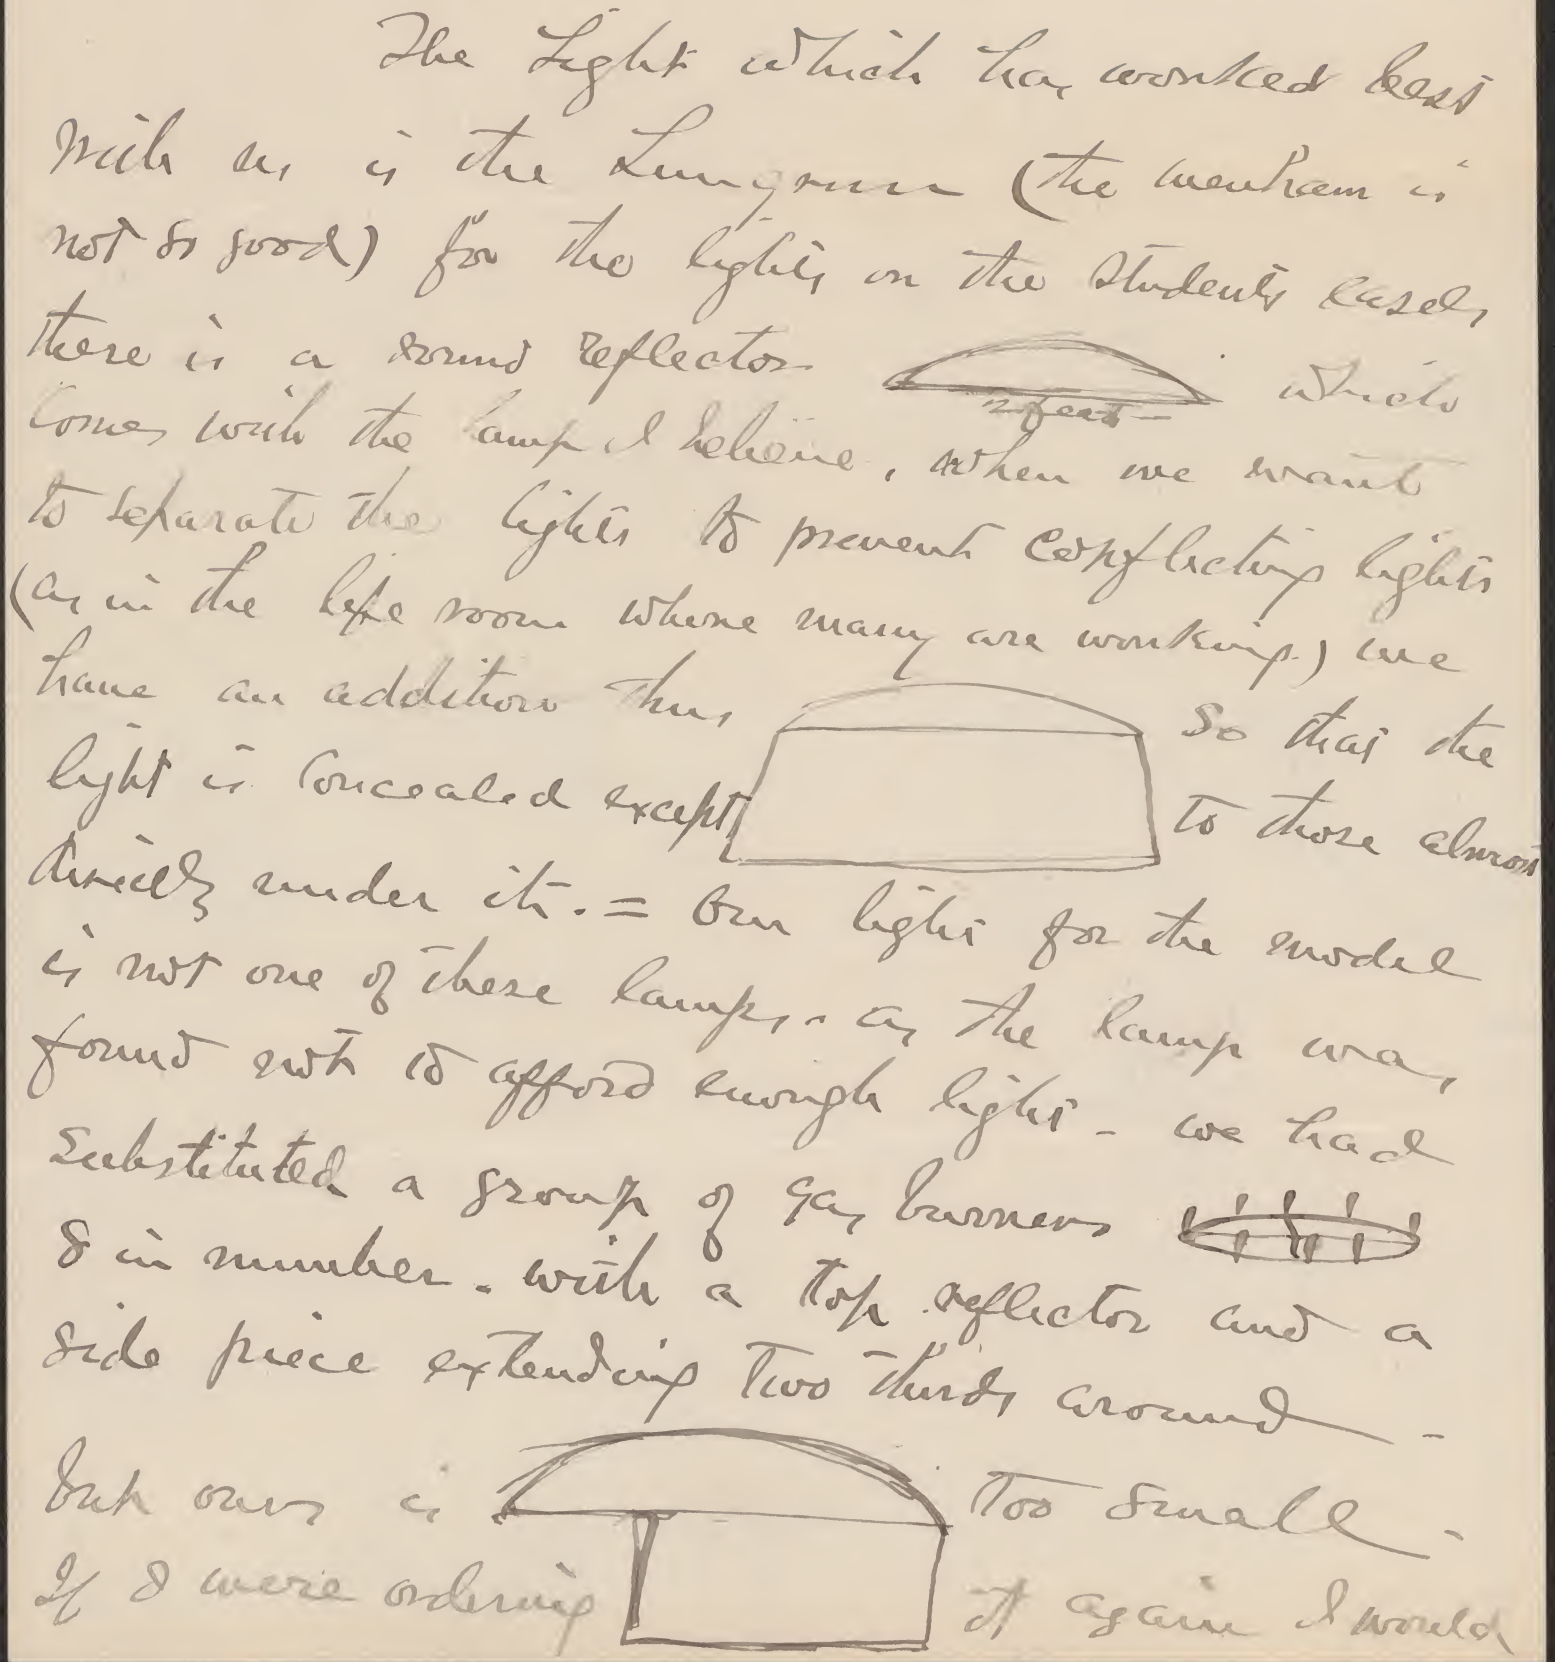 The Light which has worked best
with us is the Lungren (the Wenham is
not so good) for the lights on the students easels
there is a round reflector which
2 feet
comes with the lamp I believe, when we want
to separate the lights to prevent conflicting lights
(as in the life room where many are working) we
have an addition thus so that the
light is concealed except to those almost
directly under it. = Our light for the model
is not one of these lamps. - as the lamp was
found not to afford enough light - we had
substituted a group of gas burners
8 in number. with a top reflector and a
side piece extending two thirds around -
but ours is too small -
If I were ordering it again I would